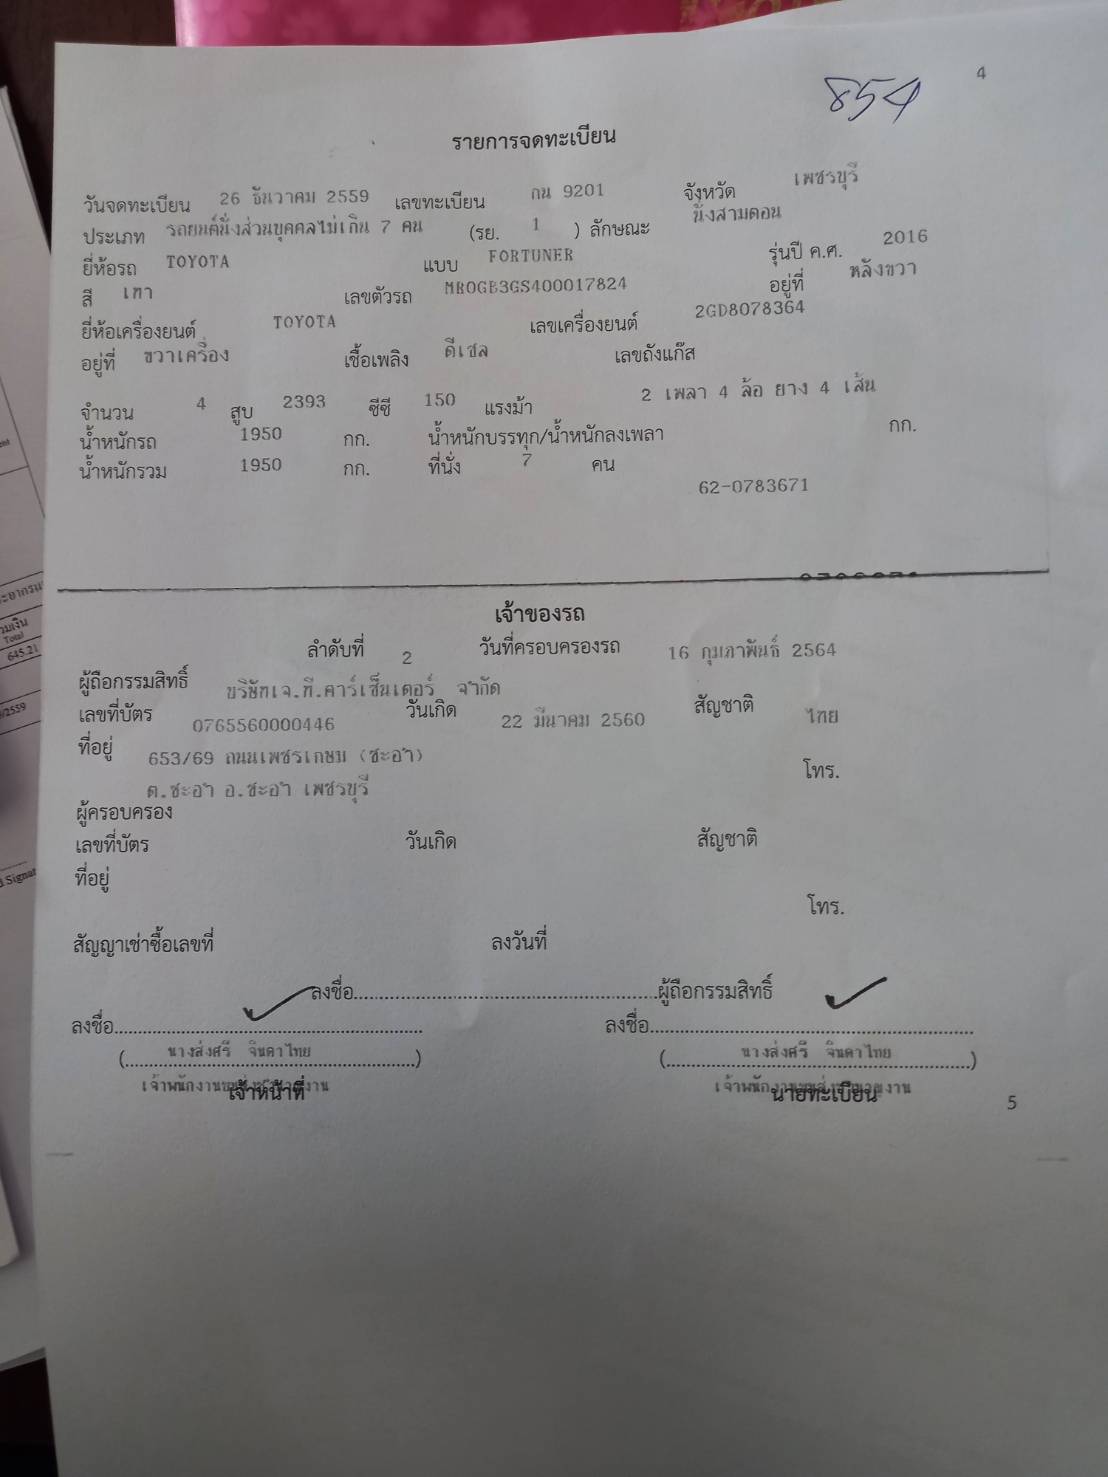 4
854
รายการจดทะเบียน
วันจดทะเบียน 26 ธันวาคม 2559 เลขทะเบียน กน 9201 จังหวัด เพชรบุรี
ประเภท รถยนต์นั่งส่วนบุคคลไม่เกิน 7 คน (รย. 1 ) ลักษณะ นั่งสามตอน
ยี่ห้อรถ TOYOTA แบบ FORTUNER รุ่นปี ค.ศ. 2016
สี เทา เลขตัวรถ MR0GB3GS400017824 อยู่ที่ หลังขวา
ยี่ห้อเครื่องยนต์ TOYOTA เลขเครื่องยนต์ 2GD8078364
อยู่ที่ ขวาเครื่อง เชื้อเพลิง ดีเซล เลขถังแก๊ส
จำนวน 4 สูบ 2393 ซีซี 150 แรงม้า 2 เพลา 4 ล้อ ยาง 4 เส้น
น้ำหนักรถ 1950 กก. น้ำหนักบรรทุก/น้ำหนักลงเพลา กก.
น้ำหนักรวม 1950 กก. ที่นั่ง 7 คน
62-0783671
เจ้าของรถ
ลำดับที่ 2 วันที่ครอบครองรถ 16 กุมภาพันธ์ 2564
ผู้ถือกรรมสิทธิ์ บริษัทเจ.ที.คาร์เซ็นเตอร์ จำกัด
เลขที่บัตร 0765560000446 วันเกิด 22 มีนาคม 2560 สัญชาติ ไทย
ที่อยู่ 653/69 ถนนเพชรเกษม (ชะอำ)
โทร.
ต.ชะอำ อ.ชะอำ เพชรบุรี
ผู้ครอบครอง
เลขที่บัตร วันเกิด สัญชาติ
ที่อยู่
โทร.
สัญญาเช่าซื้อเลขที่ ลงวันที่
ลงชื่อ..........ผู้ถือกรรมสิทธิ์
ลงชื่อ.......... ลงชื่อ..........
(นางส่งศรี จินดาไทย) (นางส่งศรี จินดาไทย)
เจ้าหน้าที่ นายทะเบียน
5
645.21
Total